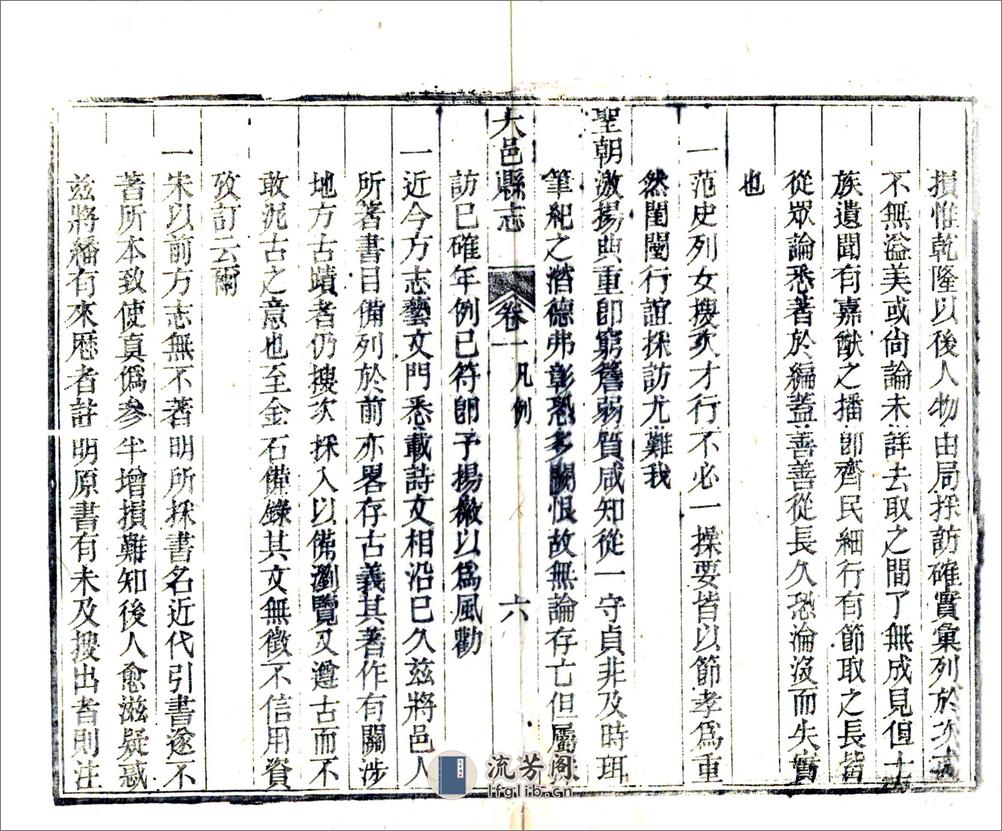 損惟乾隆以後人物由局採訪確實彙列於次或
不無溢美或尚論未詳去取之間了無成見但士
族遺聞有嘉猷之播即齊民細行有節取之長皆
從眾論悉著於編蓋善善從長久恐淪沒而失實
也
一范史列女搜次才行不必一操要皆以節孝為重
然閨閫行誼採訪尤難我
聖朝激揚典重即窮簷弱質咸知從一守貞非及時珥
筆紀之潛德弗彰恐多闕恨故無論存亡但屬
訪已確年例已符即予揚徽以為風勸
大邑縣志 卷一 凡例 六
一近今方志藝文門悉載詩文相沿已久茲將邑人
所著書目備列於前亦畧存古義其著作有關涉
地方古蹟者仍搜次採入以備瀏覽又遵古而不
敢泥古之意也至金石備錄其文無徵不信用資
攷訂云爾
一宋以前方志無不著明所採書名近代引書遂不
著所本致使真偽參半增損難知後人愈滋疑惑
茲將繙有來歷者註明原書有未及搜出者則注
流芳阁
lfglib.cn